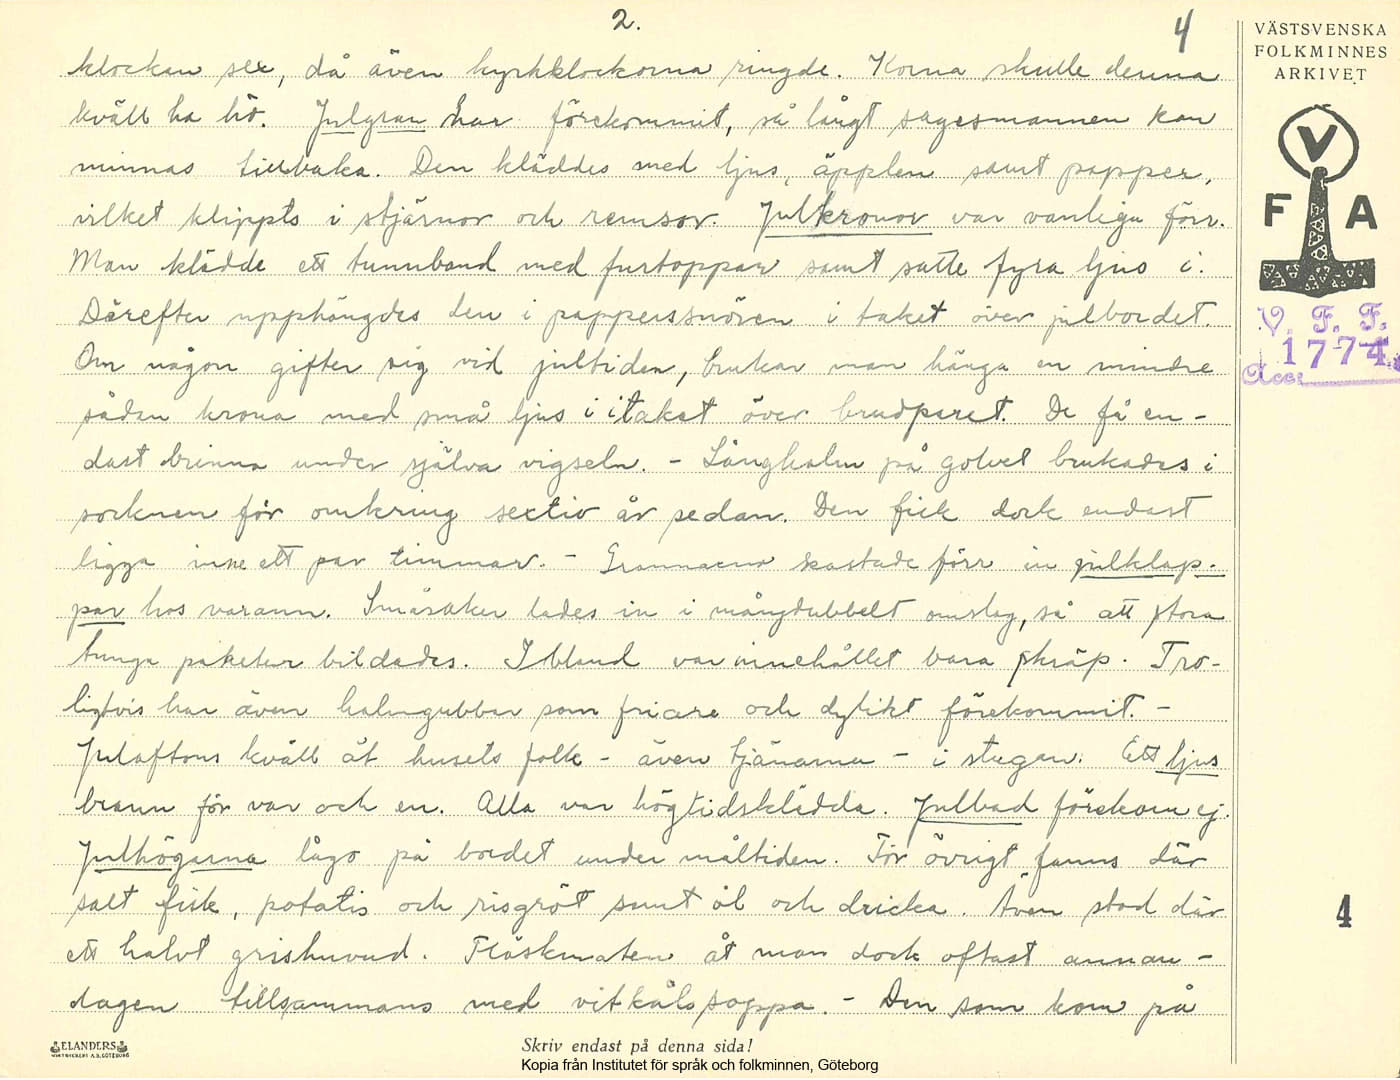 2.
4
klockan sex, då även kyrkklockorna ringde. Korna skulle denna
kväll ha hö. Julgran har förekommit, så långt sagesmannen kan
minnas tillbaka. Den kläddes med ljus, äpplen samt papper,
vilket klippts i stjärnor och remsor. Julkronor var vanliga förr.
Man klädde ett tunnband med furtoppar samt satte fyra ljus i.
Därefter upphängdes den i papperssnören i taket över julbordet.
Om någon gifter sig vid jultiden, brukar man hänga en mindre
sådan krona med små ljus i i taket över brudparet. De få en-
dast brinna under själva vigseln. - Långhalm på golvet brukades i
socknen för omkring sextio år sedan. Den fick dock endast
ligga inne ett par timmar. - Grannarna kastade förr in julklap-
par hos varann. Småsaker lades in i mångdubbelt omslag, så att stora
tunga paketer bildades. Ibland var innehållet bara skräp. Tro-
ligtvis har även halmgubbar som friare och dylikt förekommit. -
Julaftons kväll åt husets folk - även tjänarna - i stugan. Ett ljus
brann för var och en. Alla var högtidsklädda. Julbad förekom ej.
Julhögarna lågo på bordet under måltiden. För övrigt fanns där
salt fisk, potatis och risgröt samt öl och dricka. Även stod där
ett halvt grishuvud. Fläskmaten åt man dock oftast annan-
dagen tillsammans med vitkålssoppa. - Den som kom på
VÄSTSVENSKA
FOLKMINNES
ARKIVET
V
F A
V. F. F.
1774
Acc:
4
ELANDERS
Skriv endast på denna sida!
Kopia från Institutet för språk och folkminnen, Göteborg